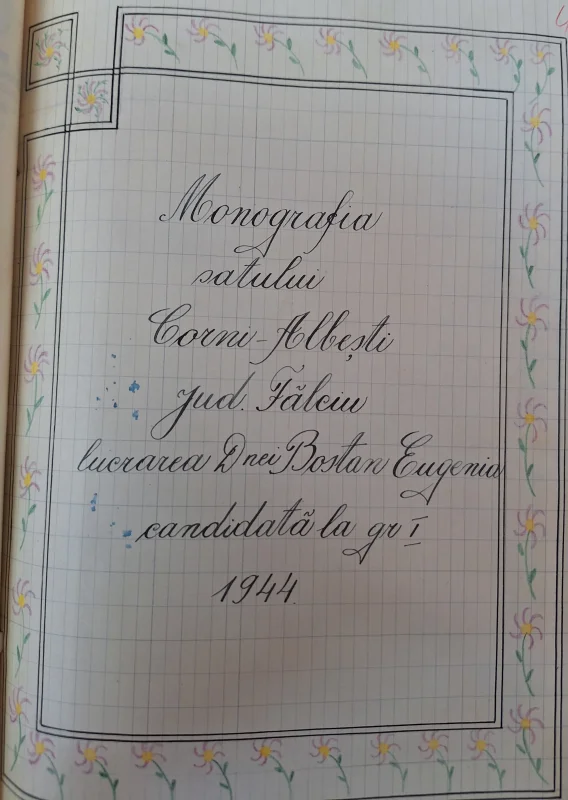 Monografia
satului
Corni-Albești
jud. Fălciu
lucrarea Dnei Bostan Eugenia
candidată la gr I
1944.